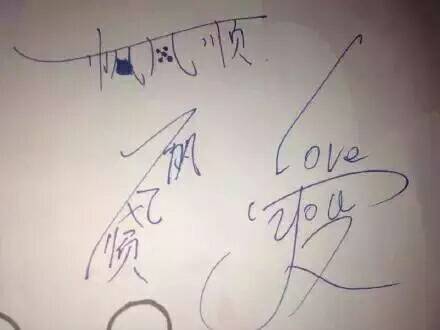 一帆风顺
一帆风顺
Love
you
爱